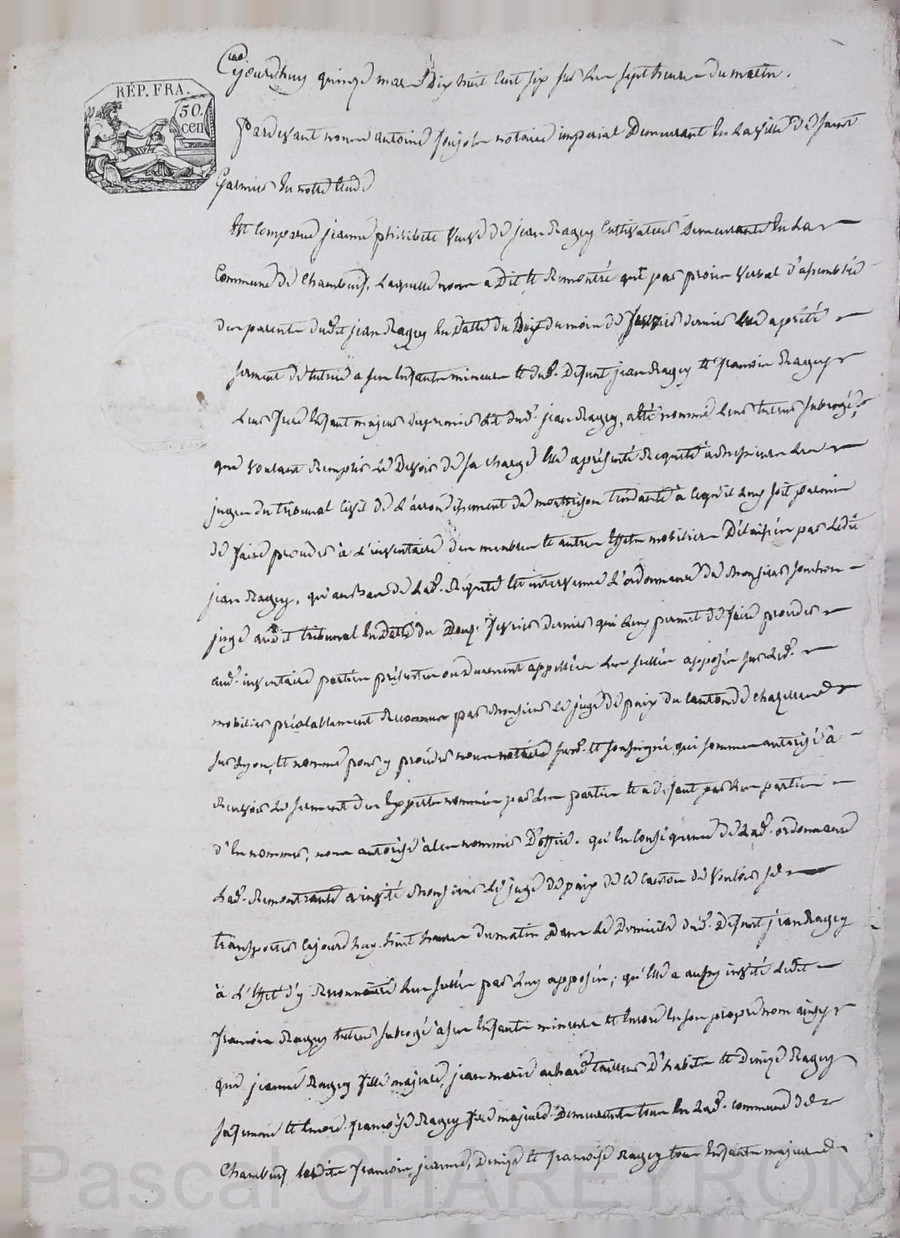 RÉP. FRA.
50. cen
Cejourdhuy quinze mars Dix huit cent six sur les sept heures du matin.
Pardevant nous antoine notaire imperial Demeurant en la ville de saint
Galmier en notre étude
Est comparue jeanne philiberte veuve de jean Ragey Cultivateur Demeurante en la
Commune de Chambeuf, Laquelle nous a Dit et Remontré que par procès verbal d'assemblée
des parents dudit jean Ragey En datte du Dix du mois de dernier Elle a prêté
serment de tutrice a ses Enfants mineurs et dud. Défunt jean Ragey et François Ragey
Leur frere Enfant majeur du premier Lit dud. jean Ragey, a été nommé Leur tuteur subrogé,
que voulant Remplir Le Devoir de sa charge Elle a présenté Requête à messieurs Les
juges du tribunal Civil de L'arrondissement de montbrison tendante à ce qu'il Luy soit permis
de faire proceder à L'inventaire des meubles et autres Effets mobiliers Délaissés par Ledit
jean Ragey, qu'au bas de Lad. Requête est intervenue L'ordonnance de Monsieur
juge audit tribunal En Datte du Douze fevrier dernier qui Luy permet de faire proceder
aud. inventaire parties présentes ou duement appellées Les scellés apposés sur Led.
mobilier préalablement Reconnus par Monsieur Le juge de paix du Canton de Chazelles
sur Lyon, et nommé pour y proceder nous notaire susd. et soussigné qui sommes autorisé à
Recevoir Le serment des Experts nommés par Les parties et a défaut par Les parties
d'En nommer, nous autorise à Les nommer D'office. qu'En Conséquence de Lad. ordonnance
Lad. Remontrante a invité Monsieur Le juge de paix de ce Canton de vouloir se
transporter Cejourdhuy huit heures du matin Dans Le Domicile dud. Défunt jean Ragey
à L'effet d'y Reconnaître Les scellés par Luy apposés; qu'Elle a aussy invité Ledit
François Ragey tuteur subrogé a ses Enfants mineurs et Encore En son propre nom ainsy
que jeanne Ragey fille majeure, jean marie achard tailleur D'habits et Denize Ragey
sa femme et Encore françoise Ragey fille majeure Demeurants tous En Lad. commune de
Chambeuf Lesdits François, jeanne, Denize et françoise Ragey tous Enfants majeurs
Pascal CHAREYRON